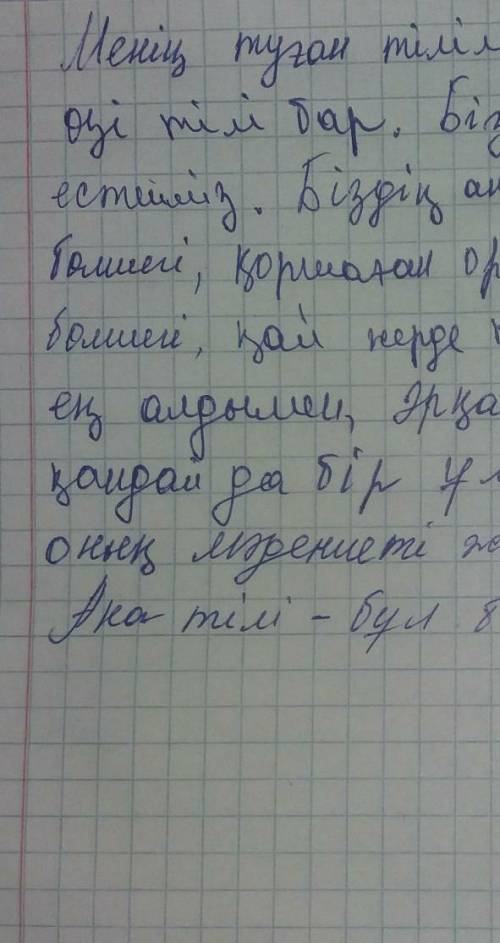 Менің туған тілім
өзі тілі бар. Біз
естиміз. Біздің ан
бөлмесі, қоршаған ор
бөлмесі, қай жерде
ең алдымен, Әрқа
қандай да бір ұл
оның мәдениеті жә
Ана тілі - бұл